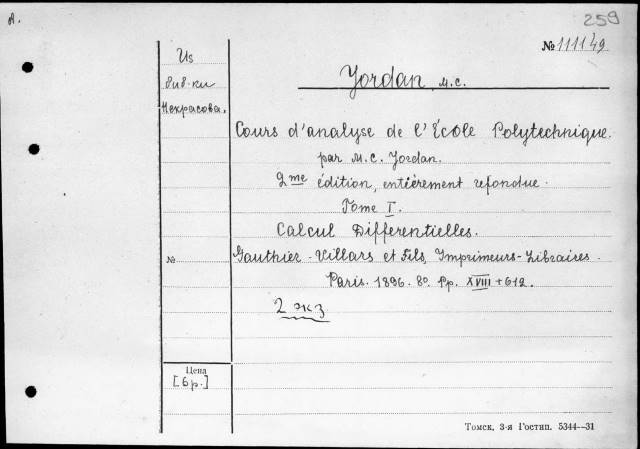 A.
259
Из
биб-ки
Некрасова.
№ 111149
Jordan, M.C.
Cours d'analyse de l'École Polytechnique.
par M.C. Jordan.
2me édition, entièrement refondue.
Tome I.
Calcul Differentielles.
№
Gauthier-Villars et Fils, Imprimeurs-Libraires.
Paris. 1896. 8º. Pp. XVIII + 612.
2 экз
Цена
[6 р.]
Томск, 3-я Гостип. 5344—31